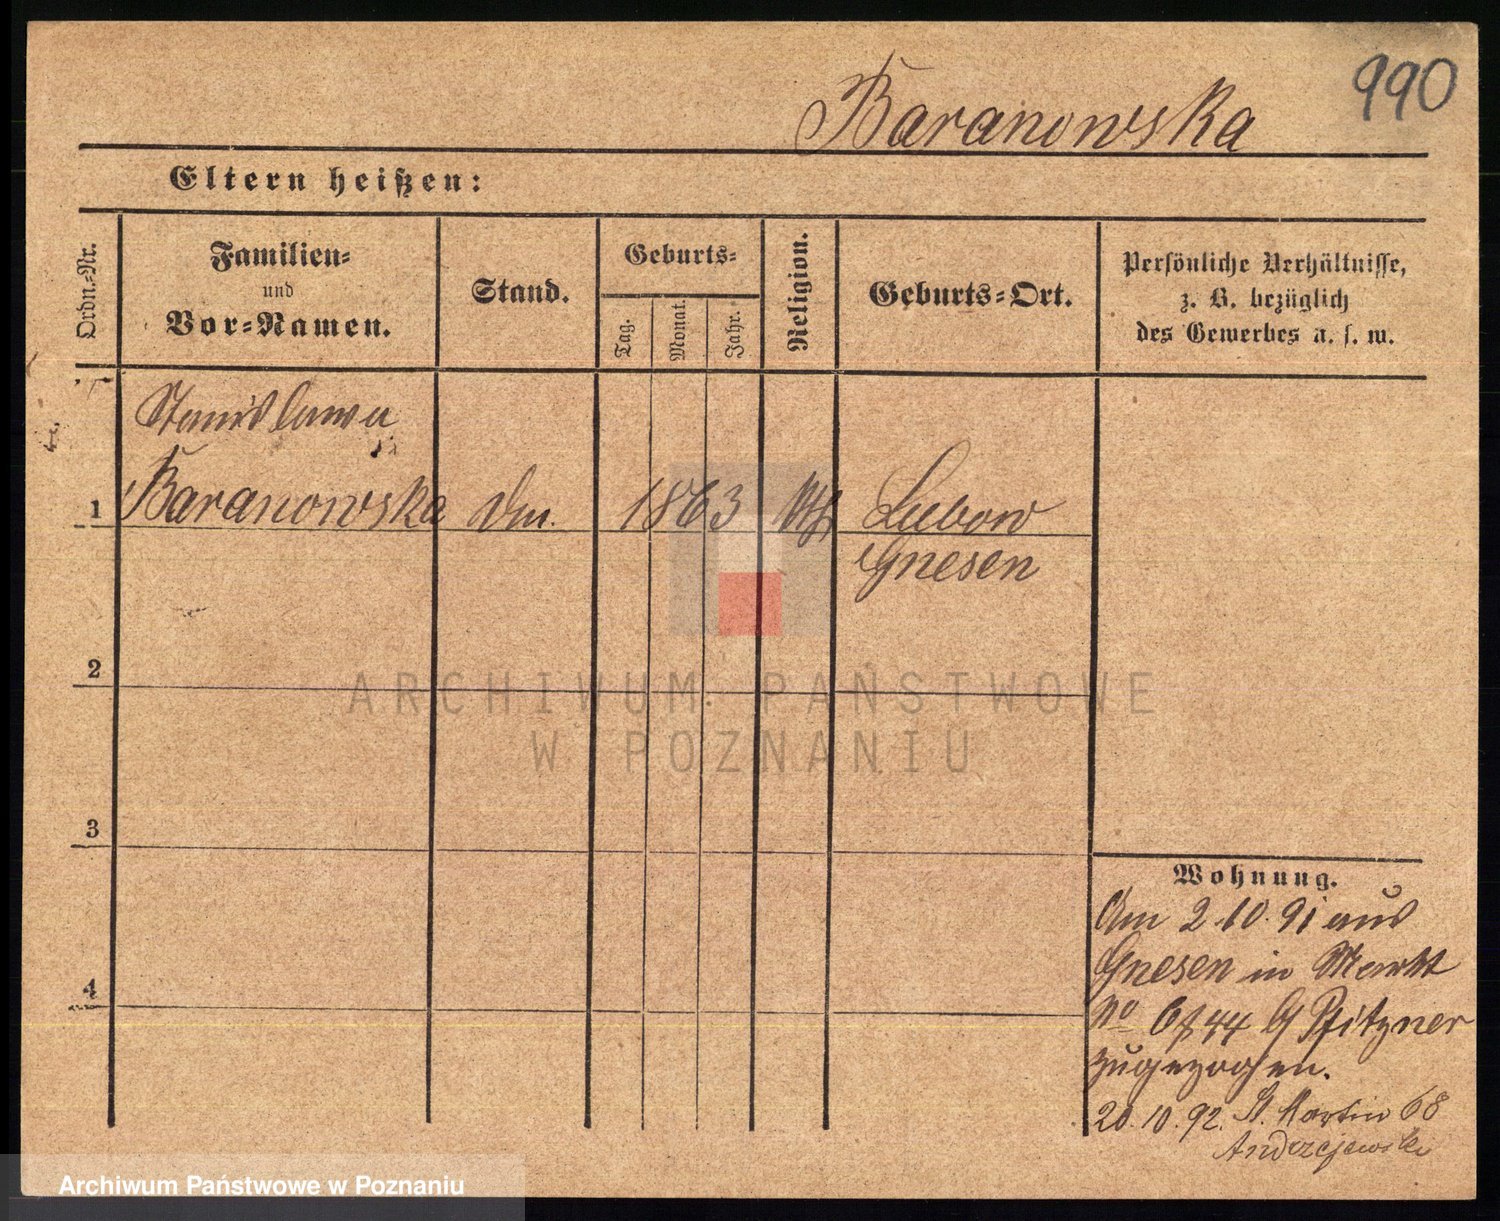 990
Baranowska
Eltern heißen:
Ordn.-Nr.
Familien-
und
Vor-Namen.
Stand.
Geburts-
Tag.
Monat.
Jahr.
Religion.
Geburts-Ort.
Persönliche Verhältnisse,
z. B. bezüglich
des Gewerbes u. s. w.
Stanislawa
1 Baranowska 1863 kth Lubowo
Gnesen
2
ARCHIWUM PAŃSTWOWE
W POZNANIU
3
Wohnung.
Am 2.10.91 aus
Gnesen in Markt
4
No Pfitzner
zugezogen.
20.10.92. St. Martin 68
Andrzejewski
Archiwum Państwowe w Poznaniu